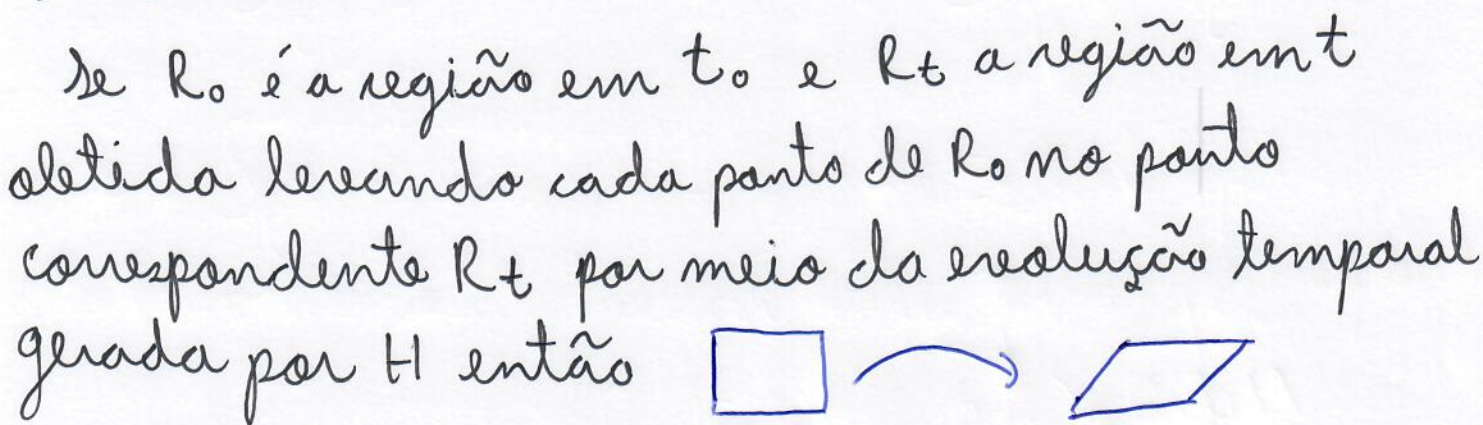 se R₀ é a região em t₀ e Rt a região em t
obtida levando cada ponto de R₀ no ponto
correspondente Rt por meio da evolução temporal
gerada por H então